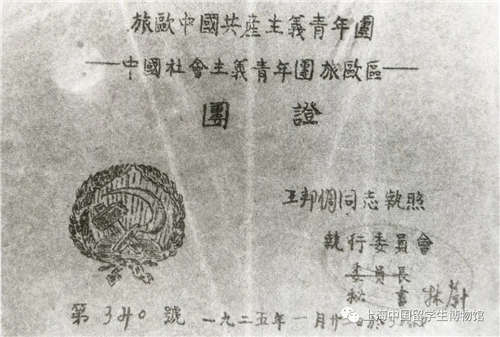 旅歐中國共產主義青年團
—中國社會主義青年團旅歐區—
團 證
王邦倜同志執照
執行委員會
委員長
秘書 林蔚
第340號 一九二五年一月廿
上海中国留学生博物馆